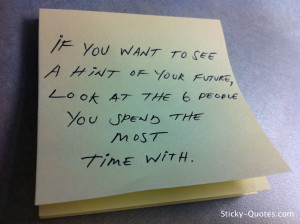 iF YOU WANT TO SEE
A HINT OF YOUR FUTURE,
LOOK AT THE 6 PEOPLE
YOU SPEND THE
MOST
TIME WITH.
Sticky-Quotes.com